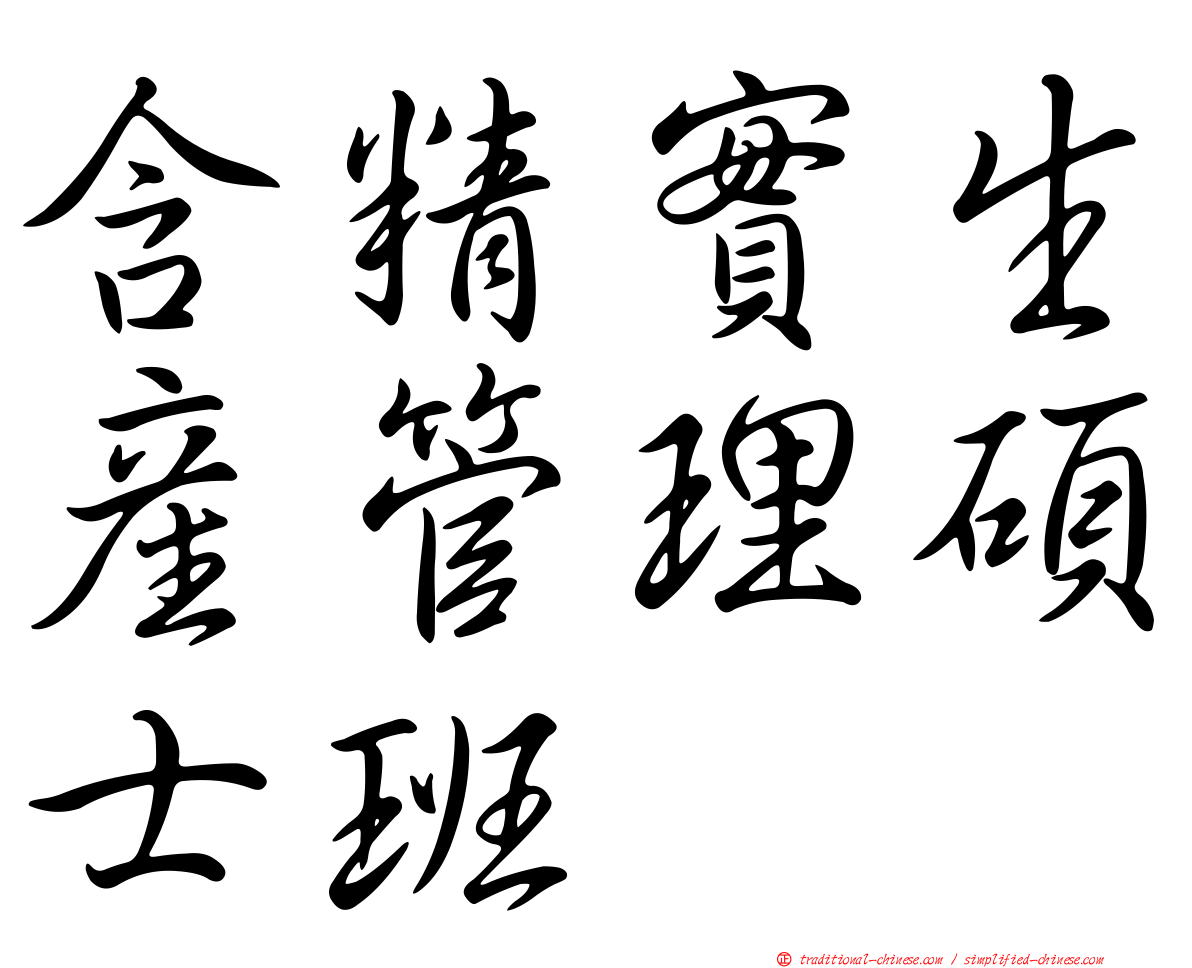 含精實生
產管理碩
士班
正 traditional-chinese.com / simplified-chinese.com